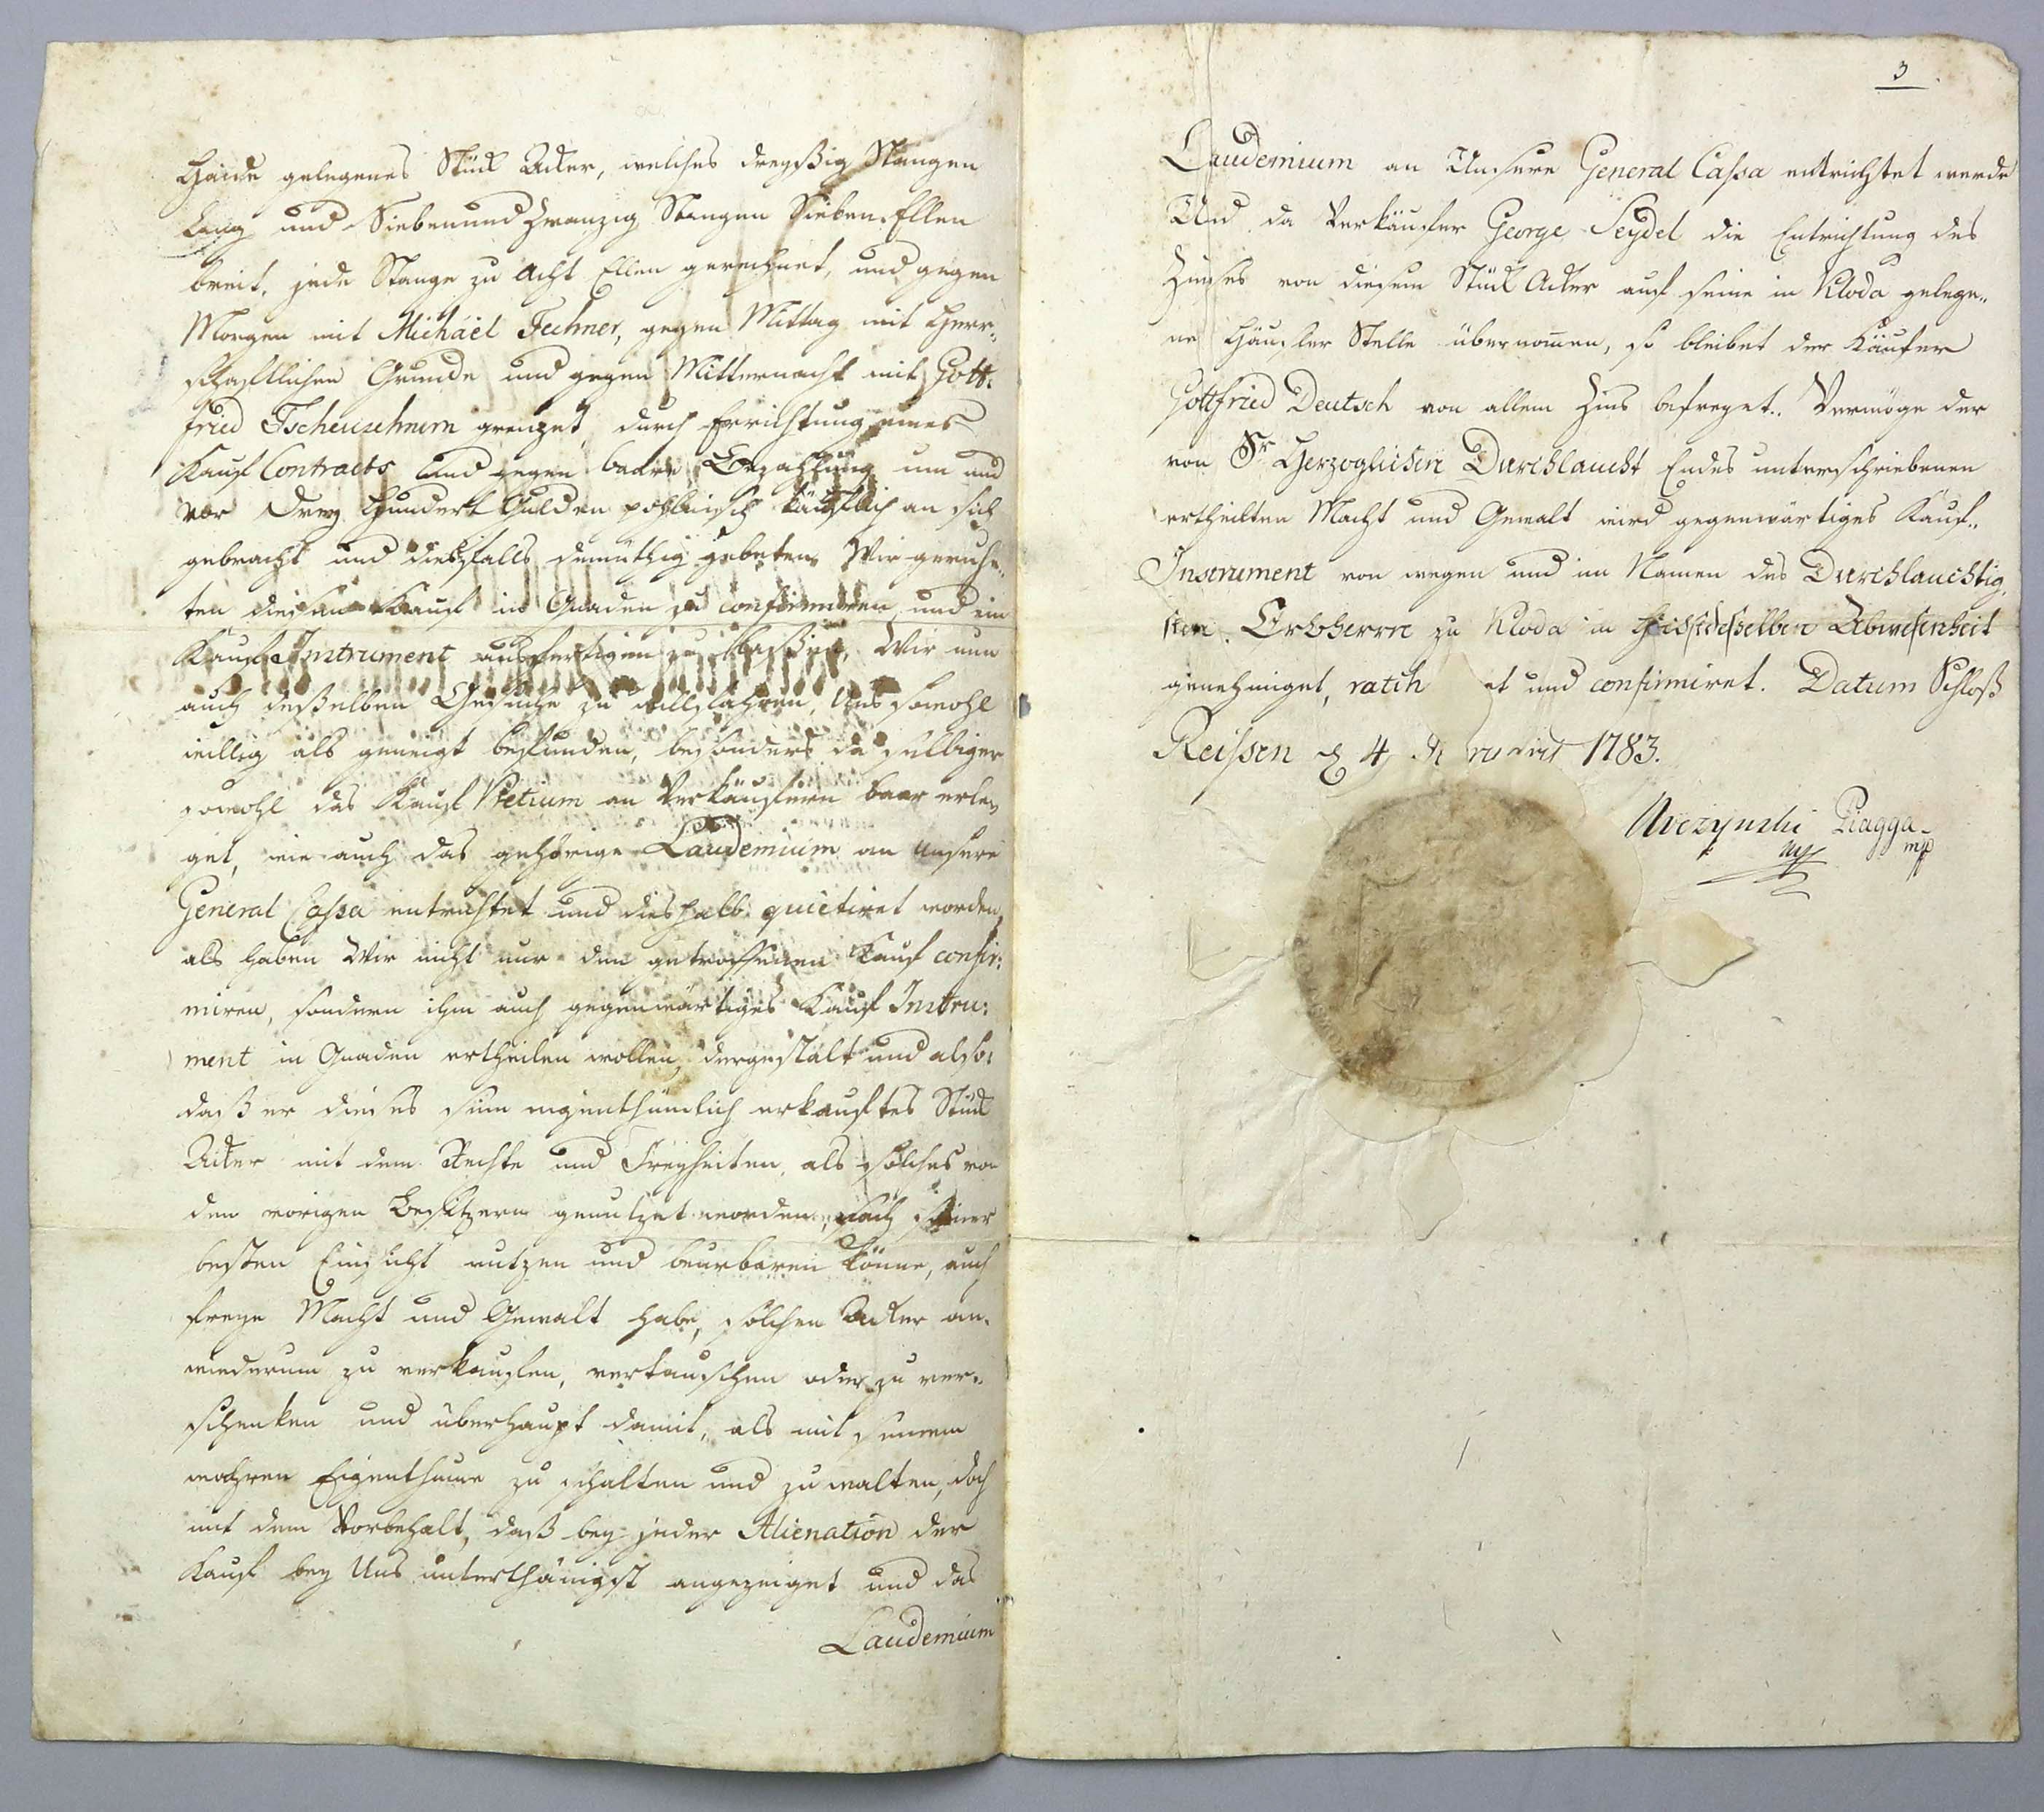 Haide gelegenes Stück Acker, welches dreyßig Stangen
lang und Siebenund Zwanzig Stangen Sieben Ellen
breit, jede Stange zu Acht Ellen gerechnet, und gegen
Morgen mit Michäel Fechner, gegen Mittag mit Herr-
schafftlichen Grunde und gegen Mitternacht mit Gott-
fried Tscheuschnern grenzet, durch Errichtung eines
Kauf Contracts und gegen baare Bezahlung um und
vor Drey Hundert Gulden pohlnisch käuflich an sich
gebracht und diesfalls demüthig gebeten Wir geruhe-
ten diesen Kauf in Gnaden zu confirmiren und ein
Kauf Instrument ausfertigen zu laßen, Wir nun
auch deßelben Gesuche zu willfahren, Uns sowohl
willig als geneigt befunden, besonders da selbiger
sowohl das Kauf Pretium an Verkäufern baar erle-
get, wie auch das gehörige Laudemium an Unsere
General Cassa entrichtet und dieshalb quietiret worden,
als haben Wir nicht nur den getroffenen Kauf confir-
miren, sondern ihm auch gegenwärtiges Kauf Instru-
ment in Gnaden ertheilen wollen, dergestalt und also:
daß er dieses sein eigenthümlich erkauftes Stück
Acker mit dem Rechte und Freyheiten, als solches von
den vorigen Besitzern genutzet worden, nach seiner
besten Einsicht nutzen und beurbaren könne, auch
freye Macht und Gewalt habe, solchen Acker an-
wiederum zu verkaufen, vertauschen oder zu ver-
schenken und überhaupt damit, als mit seinem
wahren Eigenthume zu schalten und zu walten, doch
mit dem Vorbehalt, daß bey jeder Alienation der
Kauf bey Uns unterthänigst angezeiget und das
Laudemium
3
Laudemium an Unsere General Cassa entrichtet werde
Und da Verkäufer George Seydel die Entrichtung des
Zinses von diesem Stück Acker auf seine in Kloda gelege-
ne Häusler Stelle übernommen, so bleibet der Käufer
Gottfried Deutsch von allem Zins befreyet. Vermöge der
von Sr Herzoglichen Durchlaucht Endes unterschriebenen
ertheilten Macht und Gewalt wird gegenwärtiges Kauf-
Instrument von wegen und im Namen des Durchlauchtig-
sten Erbherrn zu Kloda in Höchstdesselben Abwesenheit
genehmiget, ratih et und confirmiret. Datum Schloß
Reissen d 4 1783.
Piagga
mp